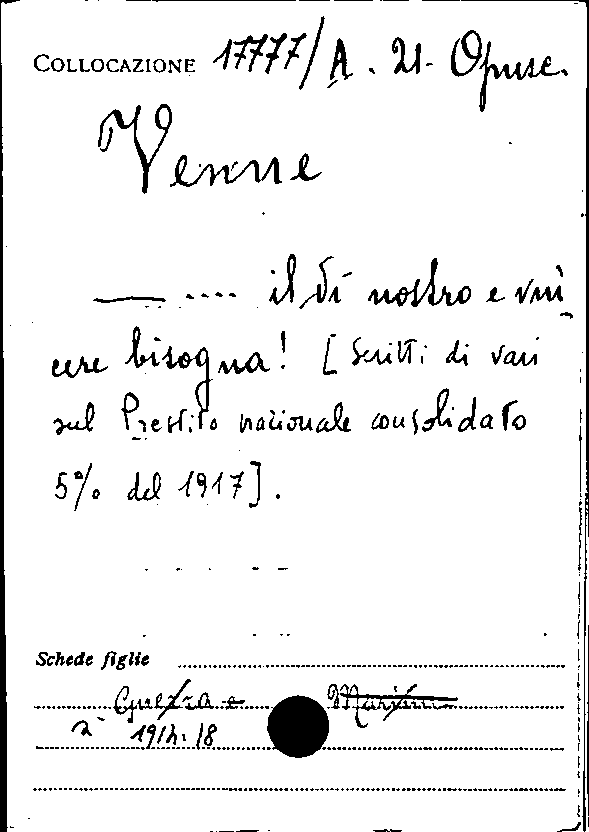 COLLOCAZIONE 17777/A. 21. Opusc.
Venne
—— .... il dì nostro e vin
cere bisogna! [Scritti di vari
sul Prestito nazionale consolidato
5% del 1917].
Schede figlie
Guerra e
1914-18